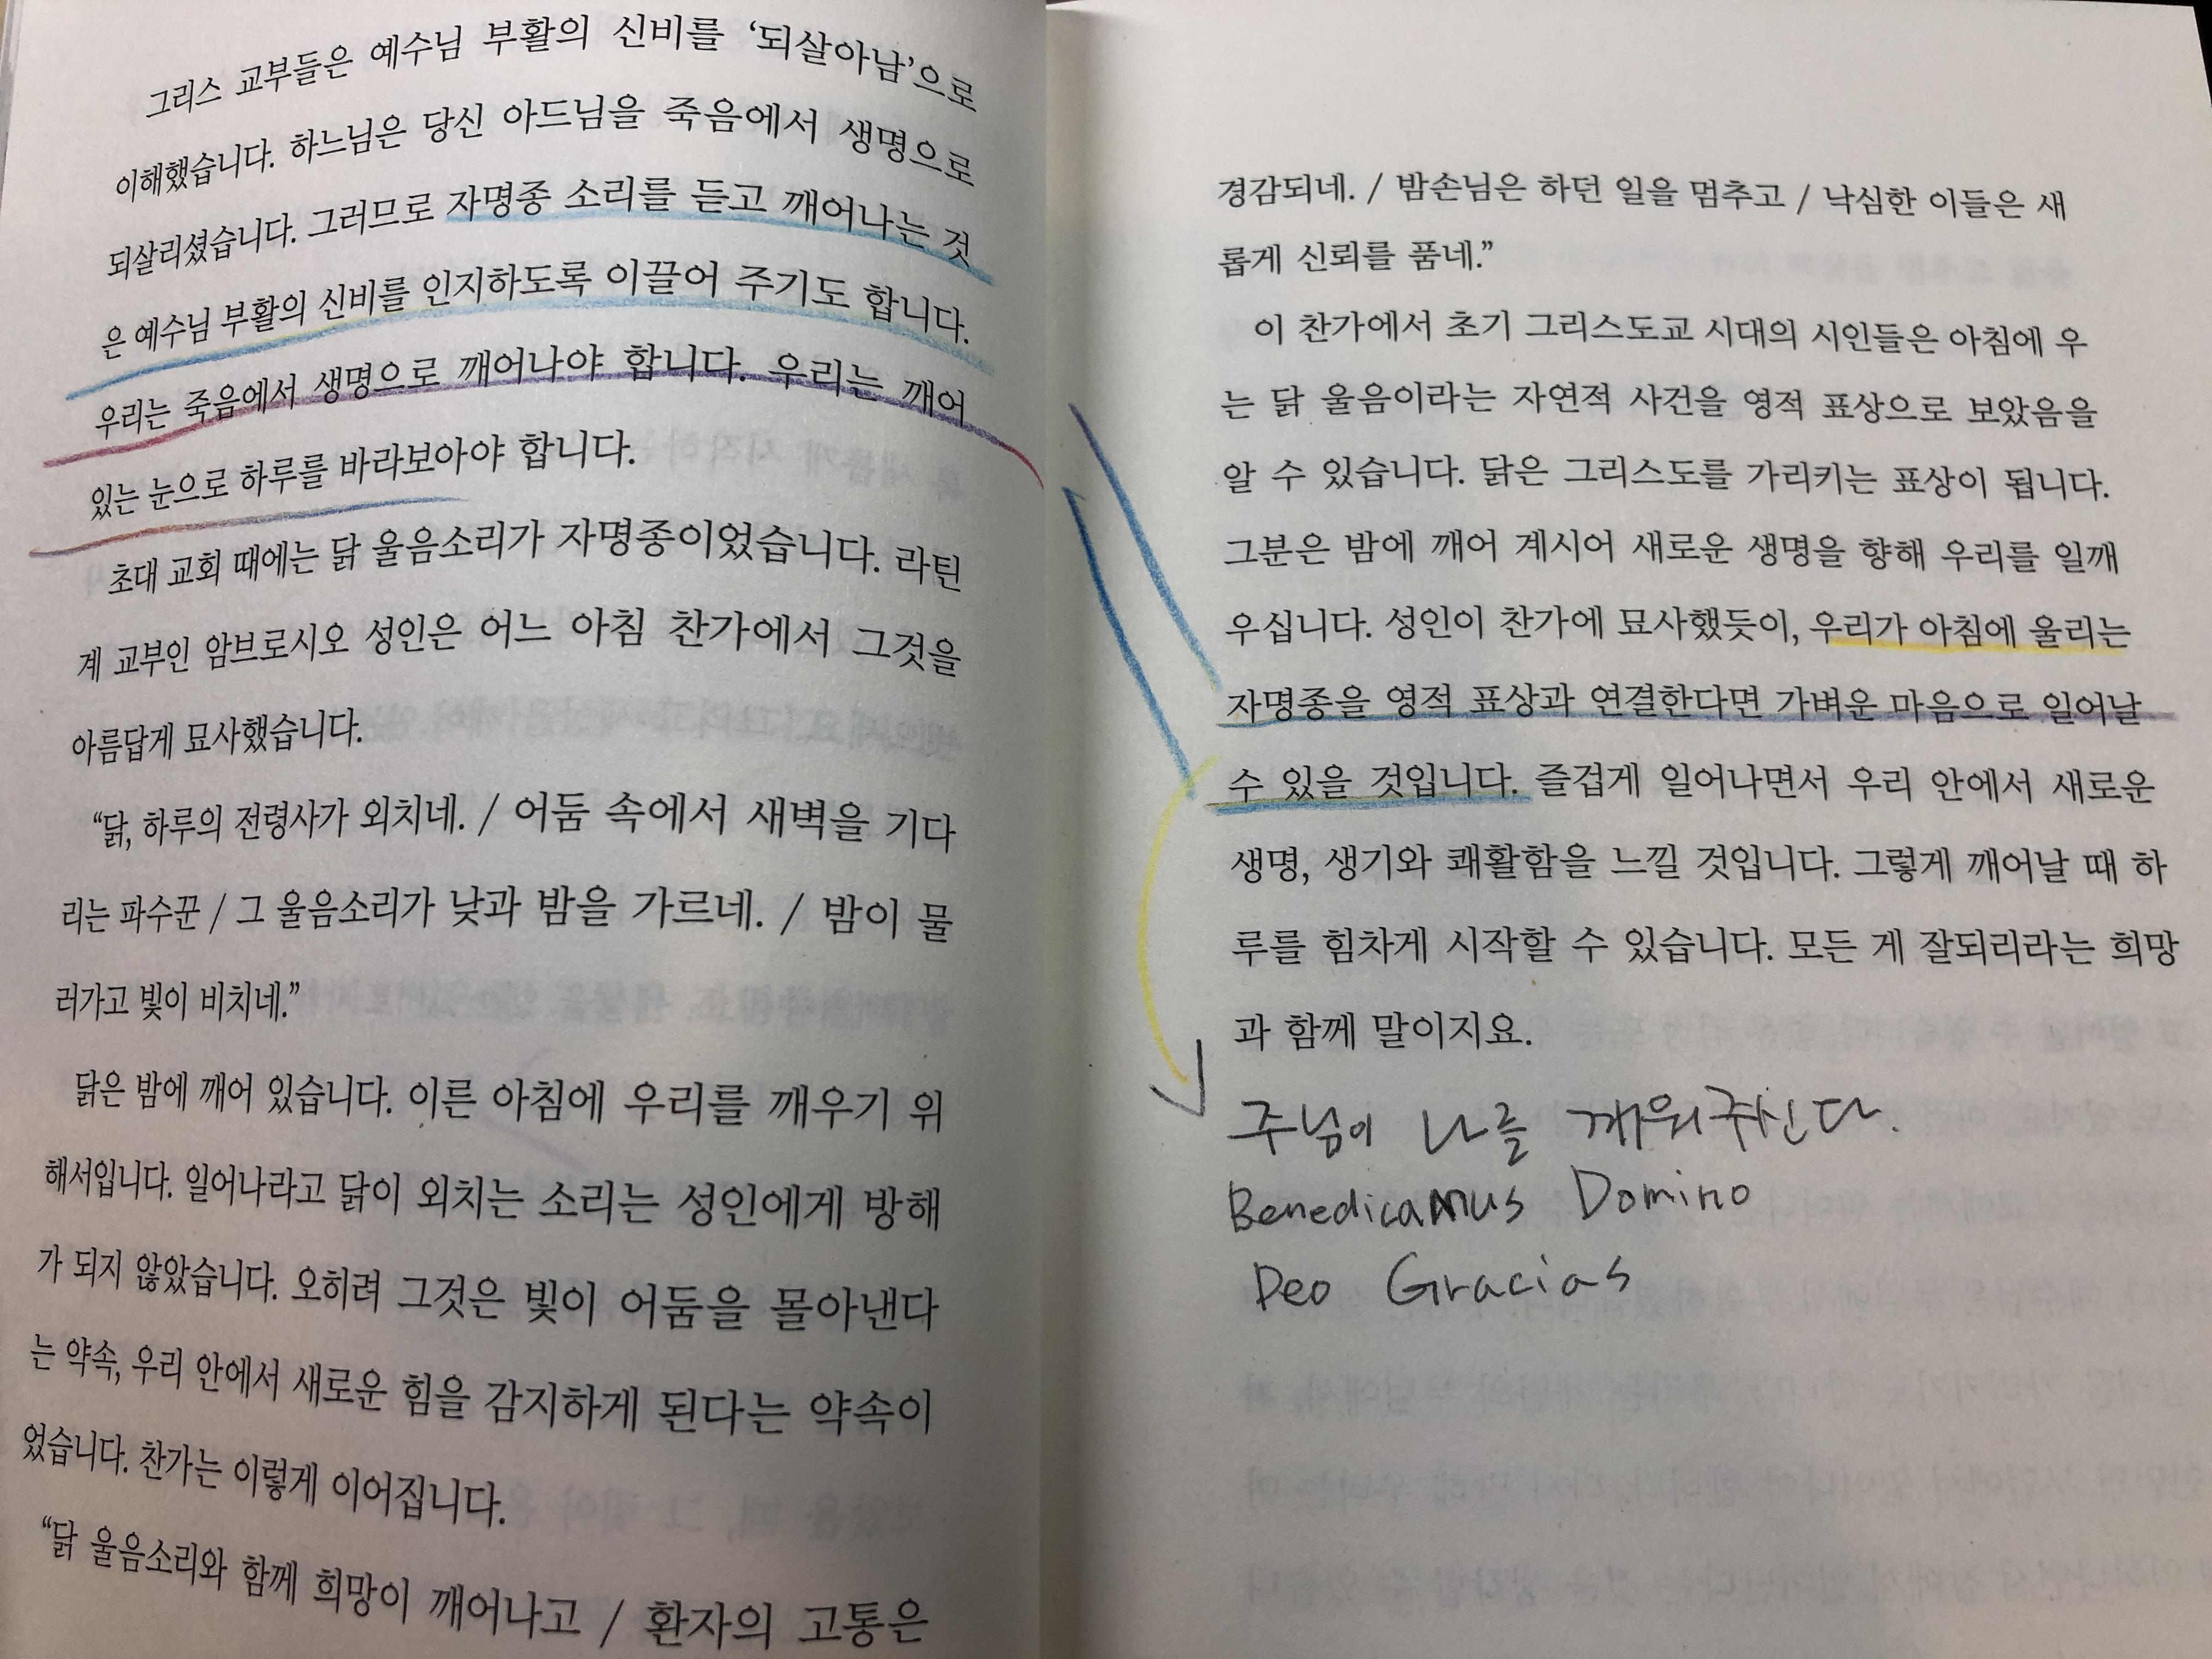 그리스 교부들은 예수님 부활의 신비를 ‘되살아남’으로
이해했습니다. 하느님은 당신 아드님을 죽음에서 생명으로
되살리셨습니다. 그러므로 자명종 소리를 듣고 깨어나는 것
은 예수님 부활의 신비를 인지하도록 이끌어 주기도 합니다.
우리는 죽음에서 생명으로 깨어나야 합니다. 우리는 깨어
있는 눈으로 하루를 바라보아야 합니다.
초대 교회 때에는 닭 울음소리가 자명종이었습니다. 라틴
계 교부인 암브로시오 성인은 어느 아침 찬가에서 그것을
아름답게 묘사했습니다.
“닭, 하루의 전령사가 외치네. / 어둠 속에서 새벽을 기다
리는 파수꾼 / 그 울음소리가 낮과 밤을 가르네. / 밤이 물
러가고 빛이 비치네.”
닭은 밤에 깨어 있습니다. 이른 아침에 우리를 깨우기 위
해서입니다. 일어나라고 닭이 외치는 소리는 성인에게 방해
가 되지 않았습니다. 오히려 그것은 빛이 어둠을 몰아낸다
는 약속, 우리 안에서 새로운 힘을 감지하게 된다는 약속이
었습니다. 찬가는 이렇게 이어집니다.
“닭 울음소리와 함께 희망이 깨어나고 / 환자의 고통은
경감되네. / 밤손님은 하던 일을 멈추고 / 낙심한 이들은 새
롭게 신뢰를 품네.”
이 찬가에서 초기 그리스도교 시대의 시인들은 아침에 우
는 닭 울음이라는 자연적 사건을 영적 표상으로 보았음을
알 수 있습니다. 닭은 그리스도를 가리키는 표상이 됩니다.
그분은 밤에 깨어 계시어 새로운 생명을 향해 우리를 일깨
우십니다. 성인이 찬가에 묘사했듯이, 우리가 아침에 울리는
자명종을 영적 표상과 연결한다면 가벼운 마음으로 일어날
수 있을 것입니다. 즐겁게 일어나면서 우리 안에서 새로운
생명, 생기와 쾌활함을 느낄 것입니다. 그렇게 깨어날 때 하
루를 힘차게 시작할 수 있습니다. 모든 게 잘되리라는 희망
과 함께 말이지요.
주님이 나를 깨워주신다.
Benedicamus Domino
Deo Gracias